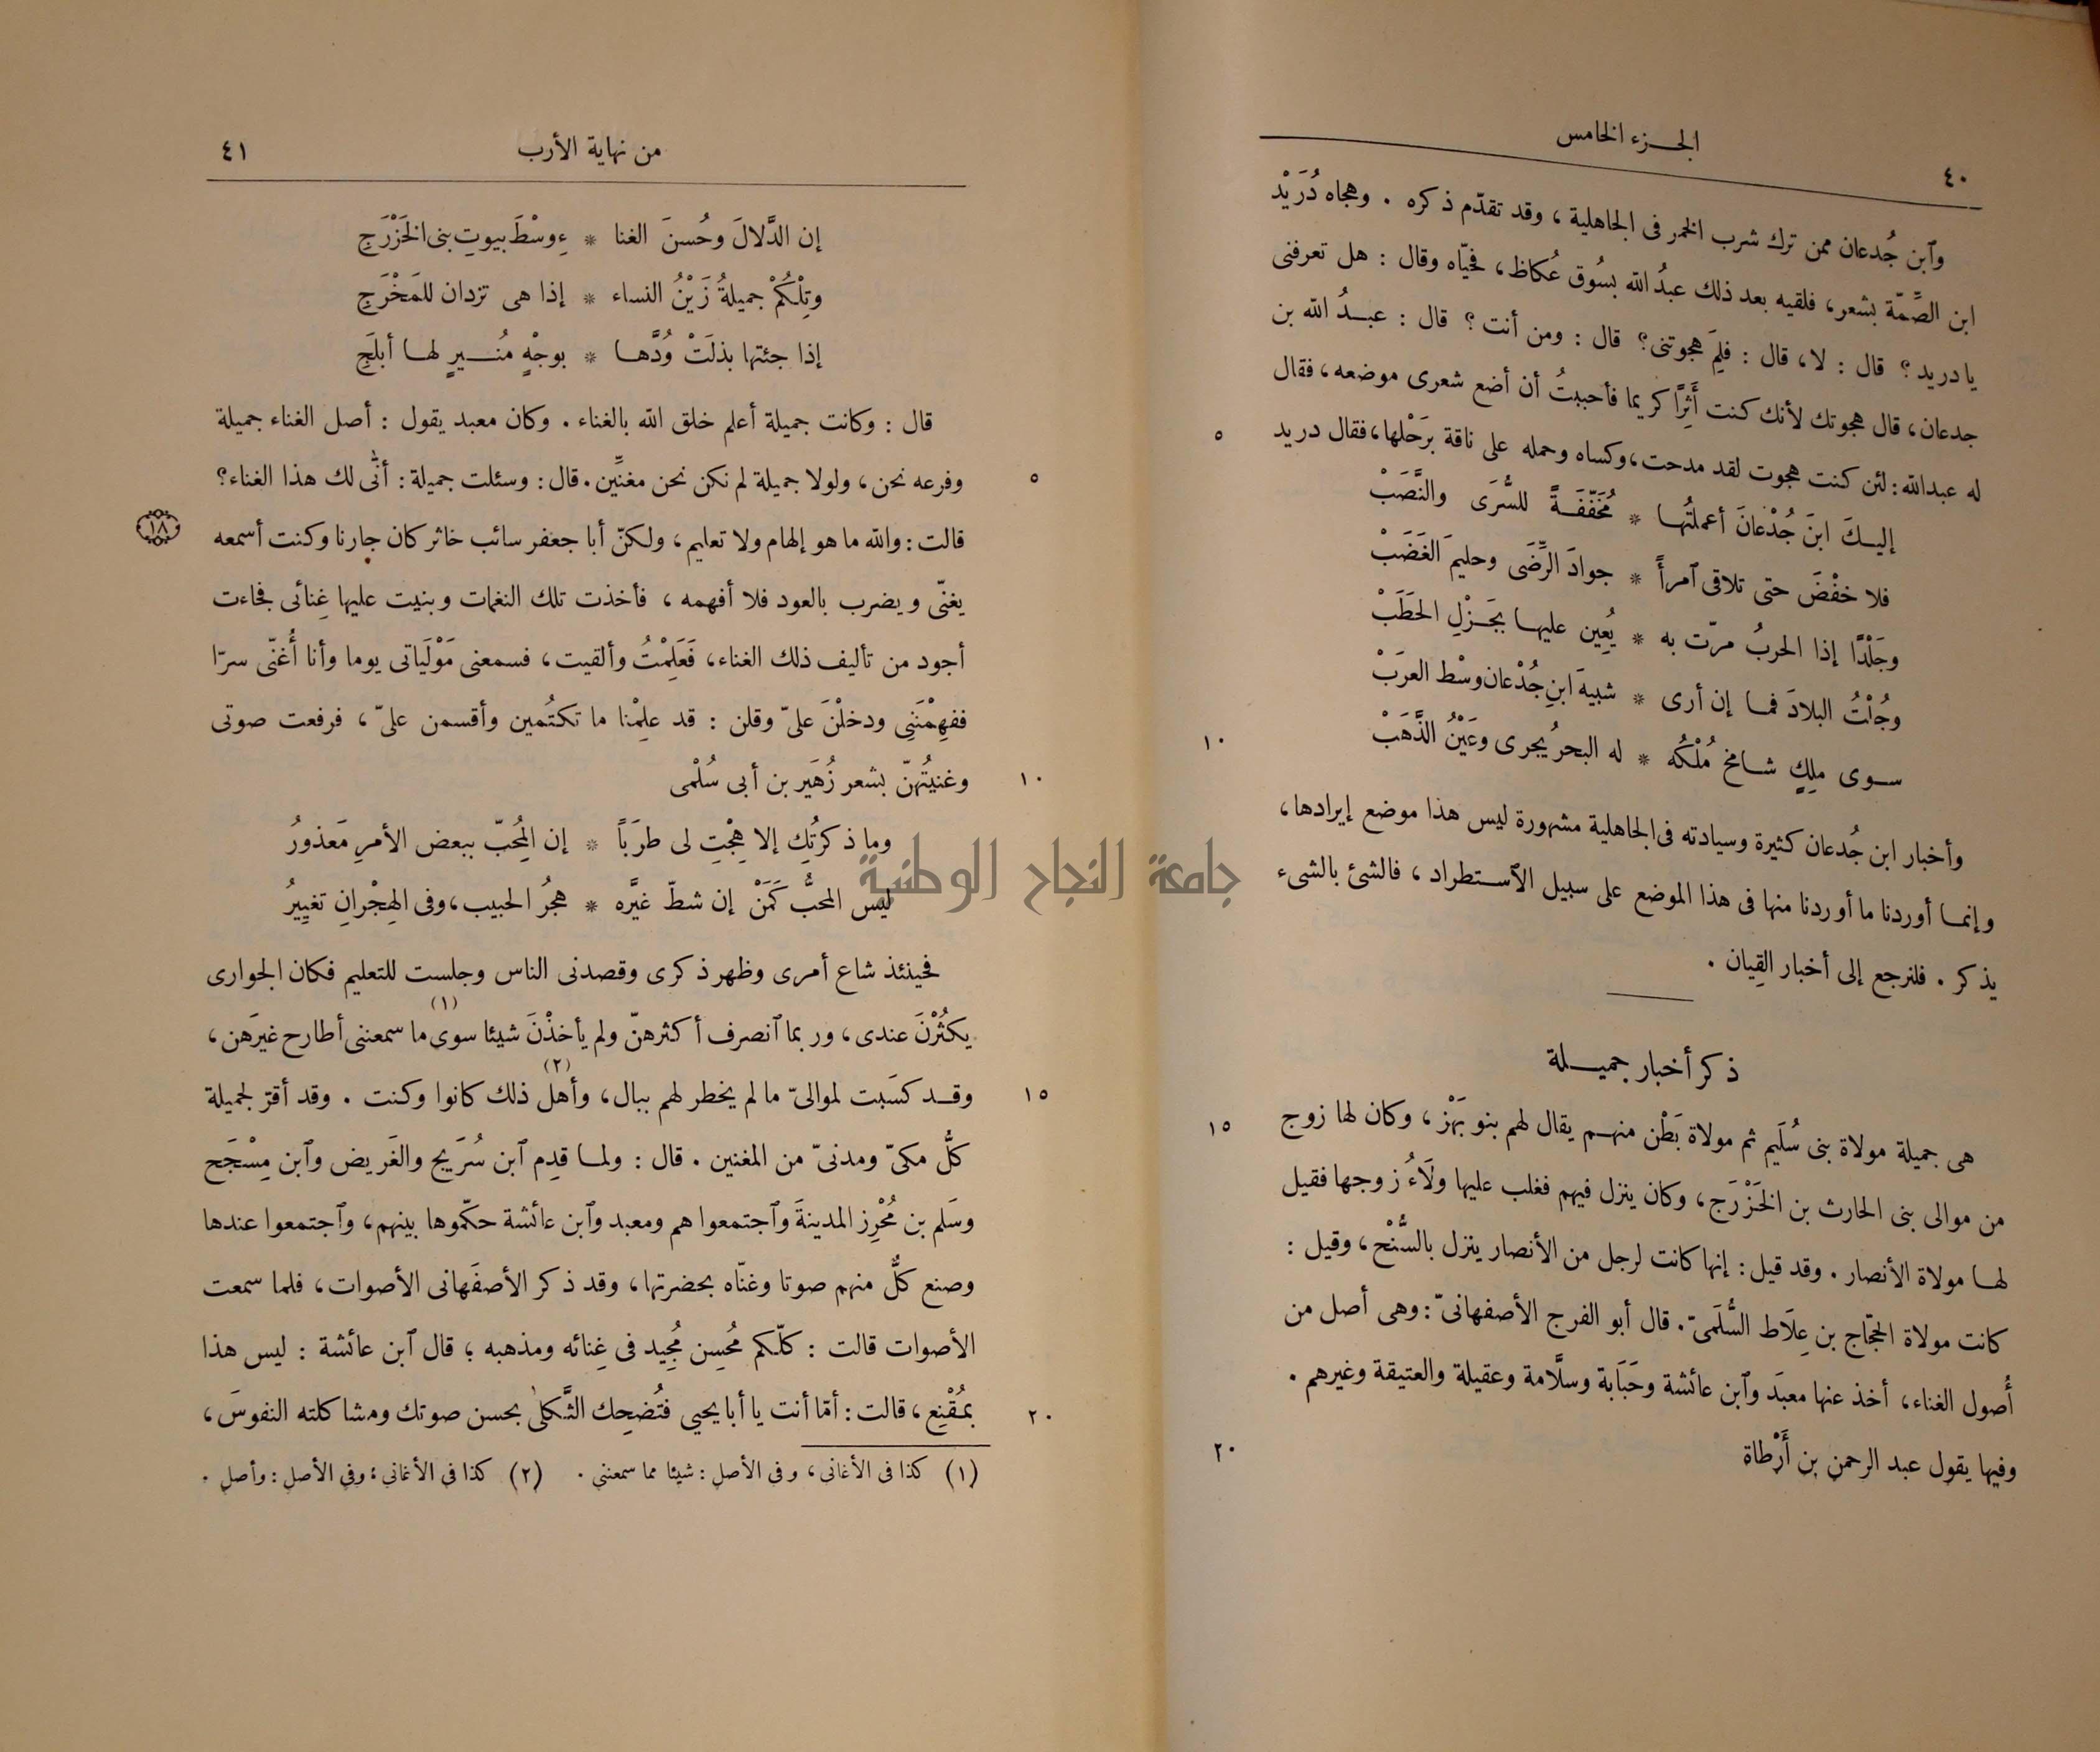 الجزء الخامس
٤٠
وآبن جُدعان ممن ترك شرب الخمر فى الجاهلية ، وقد تقدّم ذكره . وهجاه دُرَيْد
ابن الصِّمّة بشعر، فلقيه بعد ذلك عبدُ الله بسُوق عُكاظ، فحيّاه وقال : هل تعرفنى
يا دريد ؟ قال : لا، قال : فلِمَ هجوتنى؟ قال : ومن أنت ؟ قال : عبدُ الله بن
جدعان، قال هجوتك لأنك كنت أَثِرًا كريما فأحببتُ أن أضع شعرى موضعه، فقال
له عبدالله: لئن كنت هجوت لقد مدحت، وكساه وحمله على ناقة برَحْلها، فقال دريد
٥
إليكَ ابنَ جُدْعانَ أعملتُها * مُخَفّفَةً للسُّرَى والنَّصَبْ
فلا خفْضَ حتى تلاقى آمرأً * جوادَ الرِّضَى وحليمَ الغَضَبْ
وجَلْدًا إذا الحربُ مرّت به * يُعِين عليها بجَزْلِ الحَطَبْ
وجُلْتُ البلادَ فما إن أرى * شبيهَ ابنِ جُدْعان وسْط العرَبْ
سوى ملِكٍ شامخ مُلْكُه * له البحرُ يجرى وعَيْنُ الذَّهَبْ
١٠
وأخبار ابن جُدعان كثيرة وسيادته فى الجاهلية مشهورة ليس هذا موضع إيرادها،
وإنما أوردنا ما أوردنا منها فى هذا الموضع على سبيل الآستطراد ، فالشئ بالشىء
يذكر . فلنرجع إلى أخبار القِيان .
ذكر أخبار جميلة
هى جميلة مولاة بنى سُلَيم ثم مولاة بَطْن منهم يقال لهم بنو بَهْز ، وكان لها زوج
١٥
من موالى بنى الحارث بن الخَزْرَج، وكان ينزل فيهم فغلب عليها ولَاءُ زوجها فقيل
لها مولاة الأنصار . وقد قيل : إنها كانت لرجل من الأنصار ينزل بالسُّنْح، وقيل :
كانت مولاة الحجّاج بن عِلَاط السُّلَمىّ . قال أبو الفرج الأصفهانىّ : وهى أصل من
أُصول الغناء، أخذ عنها معبَد وآبن عائشة وحَبَابة وسلَّامة وعقيلة والعتيقة وغيرهم .
وفيها يقول عبد الرحمن بن أَرْطاة
٢٠
من نهاية الأرب
٤١
إن الدَّلالَ وحُسنَ الغنا * ءِ وسْطَ بيوتِ بنى الخَزْرَجِ
وتِلْكُمْ جميلةُ زَيْنُ النساء * إذا هى تزدان للمَخْرَجِ
إذا جئتها بذلَتْ وُدَّها * بوجْهٍ مُنيرٍ لها أبلَجِ
قال : وكانت جميلة أعلم خلق الله بالغناء . وكان معبد يقول : أصل الغناء جميلة
وفرعه نحن، ولولا جميلة لم نكن نحن مغنِّين. قال : وسئلت جميلة : أنَّى لك هذا الغناء؟
٥
قالت : والله ما هو إلهام ولا تعليم، ولكنّ أبا جعفر سائب خاثر كان جارنا وكنت أسمعه
١٨
يغنّى ويضرب بالعود فلا أفهمه ، فأخذت تلك النغمات وبنيت عليها غِنائى فجاءت
أجود من تأليف ذلك الغناء، فَعَلِمْتُ وألقيت، فسمعنى مَوْلَياتى يوما وأنا أُغنّى سرّا
ففهِمْنَنِى ودخلْنَ علىّ وقلن : قد علِمْنا ما تكتُمين وأقسمن علىّ ، فرفعت صوتى
وغنيتُهنّ بشعر زُهَير بن أبى سُلْمى
١٠
وما ذكرتُكِ إلا هِجْتِ لى طرَبًا * إن المُحِبّ ببعض الأمرِ مَعذورُ
ليس المحبُّ كَمَنْ إن شطّ غيَّره * هجرُ الحبيب، وفى الهِجْرانِ تغيِيرُ
جامعة النجاح الوطنية
فحينئذ شاع أمرى وظهر ذكرى وقصدنى الناس وجلست للتعليم فكان الجوارى
يكثُرْنَ عندى، وربما آنصرف أكثرهنّ ولم يأخذْنَ شيئا سوى (١) ما سمعننى أطارح غيرَهن،
وقد كسَبت لموالىّ ما لم يخطر لهم ببال، وأهل (٢) ذلك كانوا وكنت . وقد أقرّ لجميلة
١٥
كلُّ مكىّ ومدنىّ من المغنين . قال : ولما قدِم آبن سُرَيج والغَريض وآبن مِسْجَح
وسَلم بن مُحْرِز المدينةَ وآجتمعوا هم ومعبد وآبن عائشة حكّموها بينهم، وآجتمعوا عندها
وصنع كلٌّ منهم صوتا وغنّاه بحضرتها، وقد ذكر الأصفَهانى الأصوات، فلما سمعت
الأصوات قالت : كلّكم مُحسِن مُجِيد فى غِنائه ومذهبه ؛ قال آبن عائشة : ليس هذا
بمُقْنِع، قالت : أمّا أنت يا أبا يحيى فتُضحِك الثَّكلى بحسن صوتك ومشاكلته النفوسَ،
٢٠
(١) كذا فى الأغانى، وفى الأصل : شيئا مما سمعننى . (٢) كذا فى الأغانى؛ وفى الأصل : وأصل .